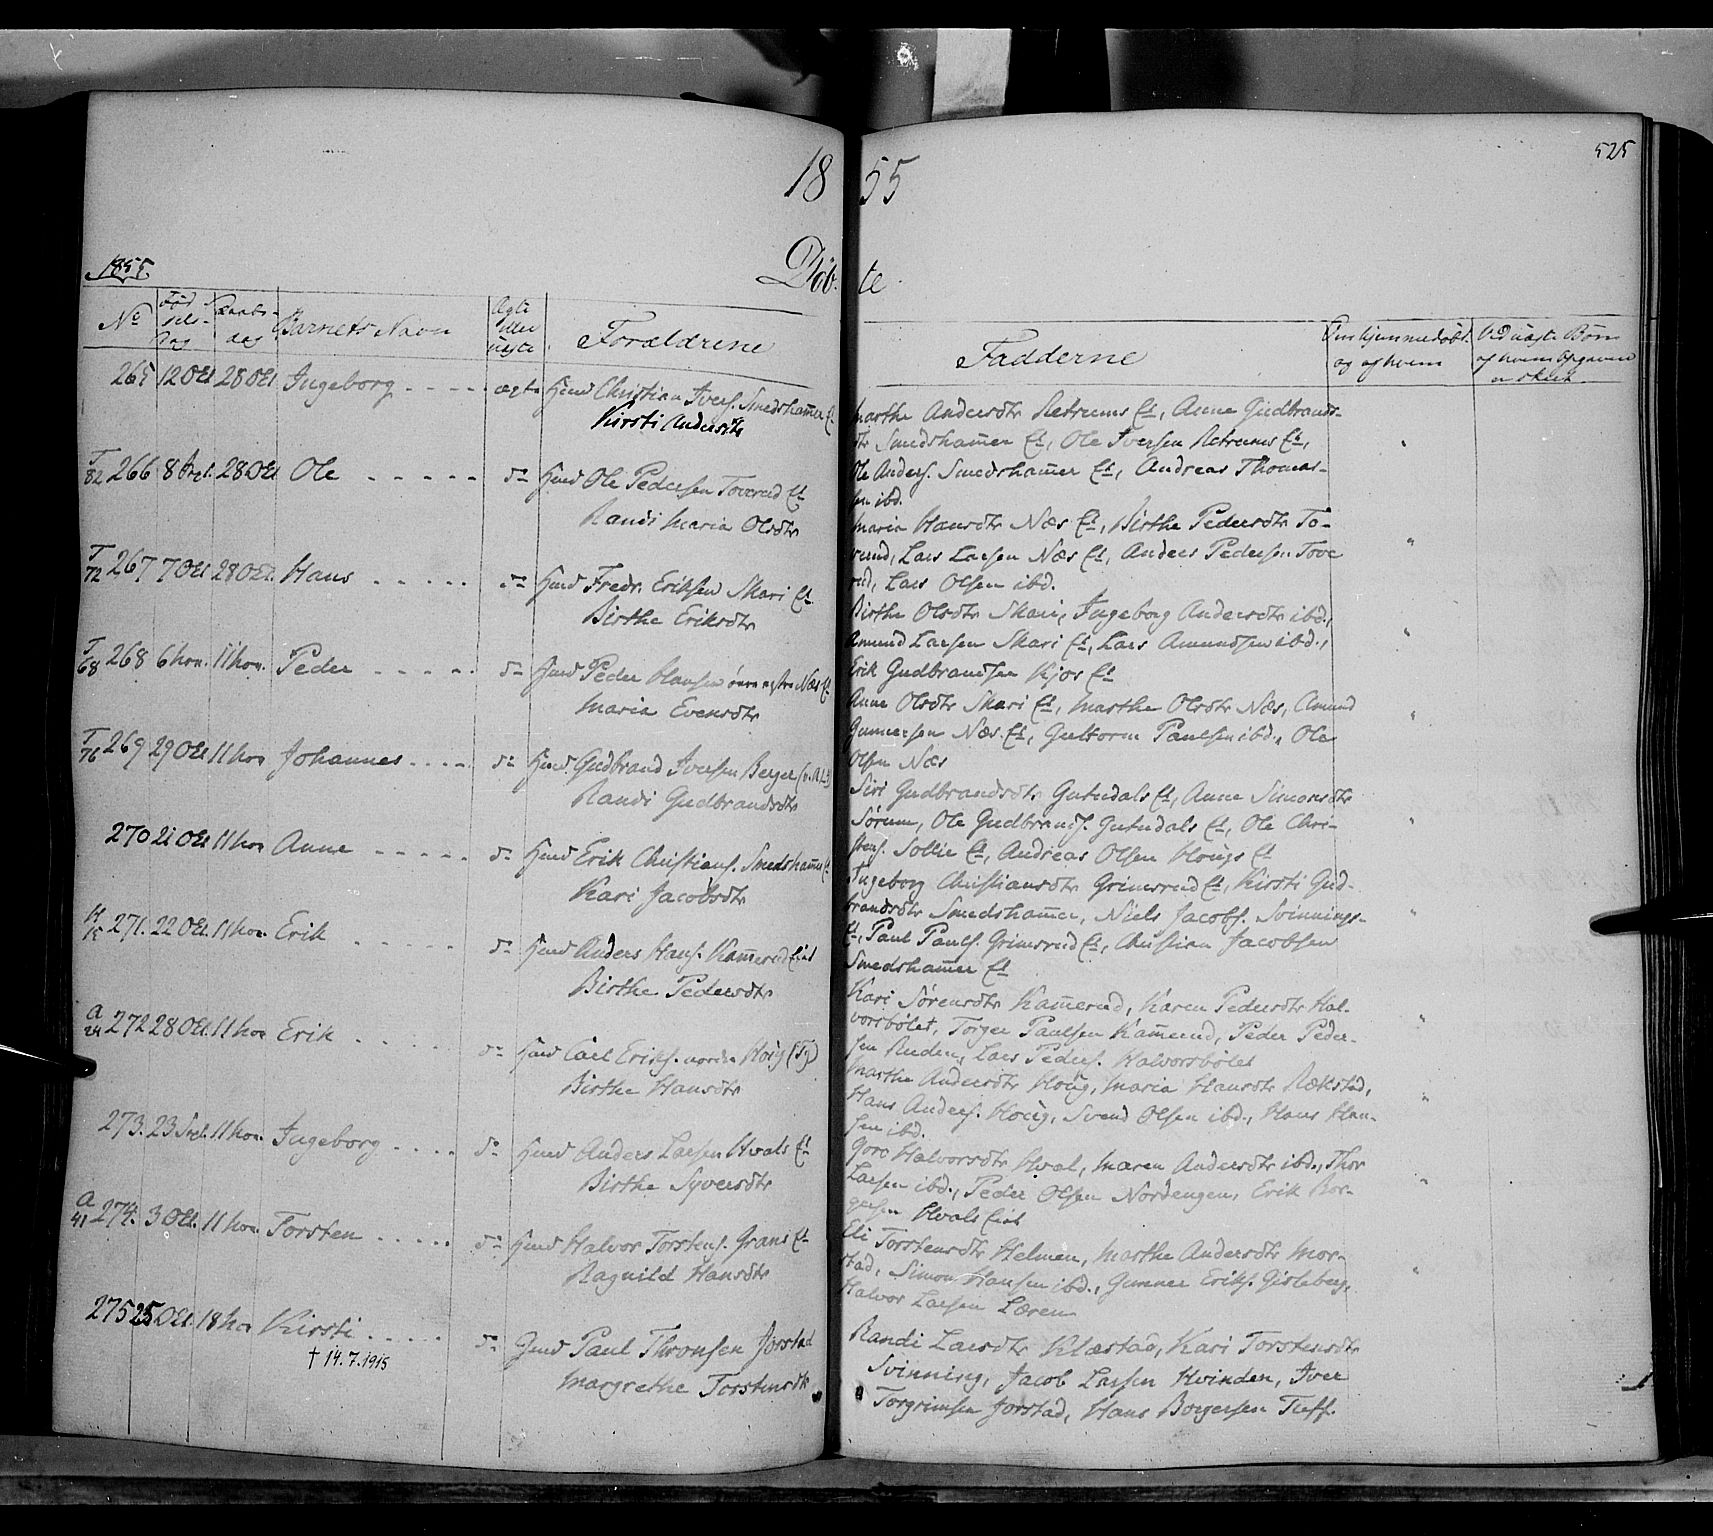 18 55
525
1855.
Döb- te
No Fød sels- Dag Daabs- dag Barnets Navn Ægte eller uægte Forældrene
Fadderne Om hjemmedøbt og af hvem Ved uægte Børn af hvem Opgaven er skeet
265 12 Oct 28 Oct Ingeborg ægte Hmd Christian Ivers. Smedshammer Et
Kirsti Andersdtr
Marthe Andersdtr Retrums Et, Anne Gudbrands-
dtr Smedshammer Et, Ole Iversen Retrums Et,
Ole Anders. Smedshammer Et, Andreas Thomas-
sen ibd.
T 82 266 8 Sept. 28 Oct Ole do Hmd Ole Pedersen Toverud Et
Randi Maria Olsdtr
Maria Hansdtr Næs Et, Birthe Pedersdtr To-
verud, Lars Larsen Næs Et, Anders Pedersen Tove
rud, Lars Olsen ibd.
T 72 267 7 Oct 28 Oct. Hans do Hmd Fredr. Eriksen Skari Et
Birthe Eriksdtr
Birthe Olsdtr Skari, Ingeborg Andersdtr ibd.,
Amund Larsen Skari Et, Lars Amundsen ibd.,
Erik Gudbrandsen Kjos Et
T 68 268 6 Nov. 11 Nov. Peder do Hmd Peder Hansen øvre Næs Et
Maria Evensdtr
Anne Olsdtr Skari Et, Marthe Olsdtr Næs, Amund
Gunnersen Næs Et, Guttorm Paulsen ibd., Ole
Olsen Næs
T 76 269 29 Oct 11 Nov Johannes do Hmd. Gudbrand Iversen Berger
Randi Gudbrandsdtr
Siri Gudbrandsdtr Gutudals Et, Anne Simonsdtr
Sørum, Ole Gudbrands. Gutudals Et, Ole Chri-
stens. Sollie Et, Andreas Olsen Hougs Et
270 21 Oct 11 Nov Anne do Hmd Erik Christians. Smedshammer Et
Kari Jacobsdtr
Ingeborg Christiansdtr Grimsrud Et, Kirsti Gud-
brandsdtr Smedshammer, Niels Jacobs. Svinnings-
Et, Paul Pauls. Grimsrud Et, Christian Jacobsen
Smedshammer Et
271. 22 Oct. 11 Nov. Erik do Hmd Anders Hans. Kammerud Eiet
Birthe Pedersdtr
Kari Sørensdtr Kammerud, Karen Pedersdtr Hal-
vorsbølet, Torger Paulsen Kammerud, Peder Peder-
sen Ruden, Lars Peders. Halvorsbølet
A 24 272 28 Oct. 11 Nov Erik do Hmd Carl Eriks. nordre Houg (Ty)
Birthe Hansdtr
Marthe Andersdtr Houg, Maria Hansdtr Rækstad,
Hans Anders. Houg, Svend Olsen ibd., Hans Han-
sen ibd.
273. 23 Sept. 11 Nov. Ingeborg do Hmd Anders Larsen Hvals Et
Birthe Syversdtr
Goro Halvorsdtr Hval, Maren Andersdtr ibd., Thor
Larsen ibd., Peder Olsen Nordengen, Erik Bor-
gersen Hvals Eiet
A 41 274. 3 Oct. 11 Nov. Torsten do Hmd Halvor Torstens. Grans Et
Ragnild Hansdtr
Eli Torstensdtr Helmen, Marthe Andersdtr Mor-
stad, Simon Hansen ibd., Gunner Eriks. Gisleberg,
Halvor Larsen Læren
275 25 Oct. 18 Nov Kirsti do Gmd Paul Thronsen Jorstad
† 14.7.1915
Margrethe Torstensdtr
Randi Larsdtr Klæstad, Kari Torstensdtr
Svinning, Jacob Larsen Hvinden, Iver
Torgrimsen Jorstad, Hans Borgersen Tuff.